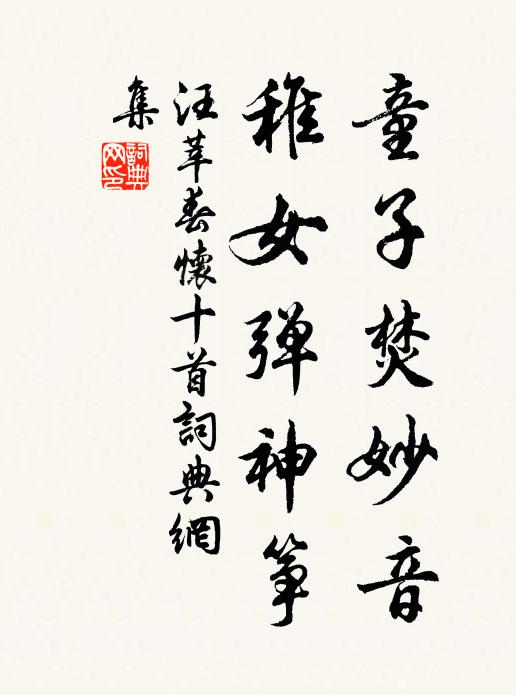 童子焚妙音
稚女弹神筝
汪莘春懷十首詞典網
集
詞典
网印